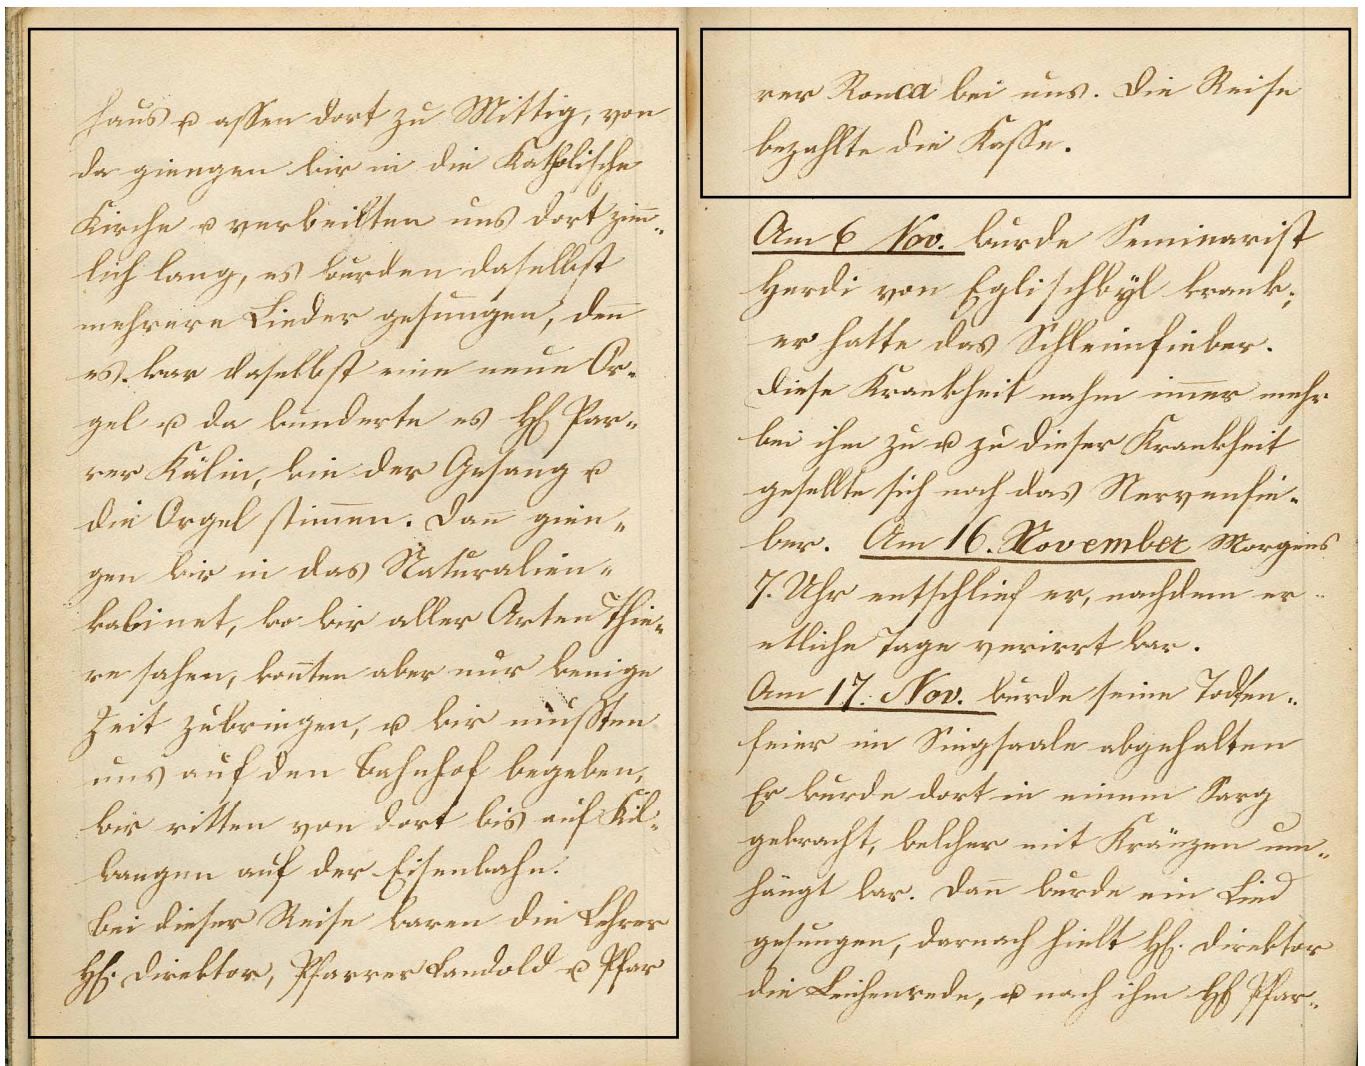 haus u assen dort zu Mittig, von
da giengen wir in die Katholische
Kirche u verweilten uns dort zim̅-
lich lang, es wurden daselbst
mehrere Lieder gesungen, den̅
es war daselbst eine neue Or-
gel u da wunderte es HH Par-
rer Kälin, wie der Gesang u
die Orgel stim̅en. Dan̅ gien-
gen wir in das Naturalien-
kabinet, wo wir aller Arten Thie-
re sahen, kon̅ten aber nur wenige
Zeit zubringen, u wir mußten
uns auf den Bahnhof begeben,
wir ritten von dort bis auf Kil-
wangen auf der Eisenbahn.
Bei dieser Reise waren die Lehrer
HH. Direktor, Pfarrer Landold u Pfar
rer Ronca bei uns. Die Reise
bezahlte die Kasse.
Am 6 Nov. wurde Seminarist
Herdi von Eglischwÿl krank;
er hatte das Schleimfieber.
Diese Krankheit nahm im̅er mehr
bei ihm zu u zu dieser Krankheit
gesellte sich noch das Nervenfie-
ber. Am 16. November Morgens
7. Uhr entschlief er, nachdem er
etliche Tage verirrt war.
Am 17. Nov. wurde seine Todten-
feier im Singsaale abgehalten
Er wurde dort in einem Sarg
gebracht, welcher mit Kränzen um-
hängt war. Dan̅ wurde ein Lied
gesungen, darnach hielt HH. Direktor
die Leichenrede, u nach ihm HH Pfar-